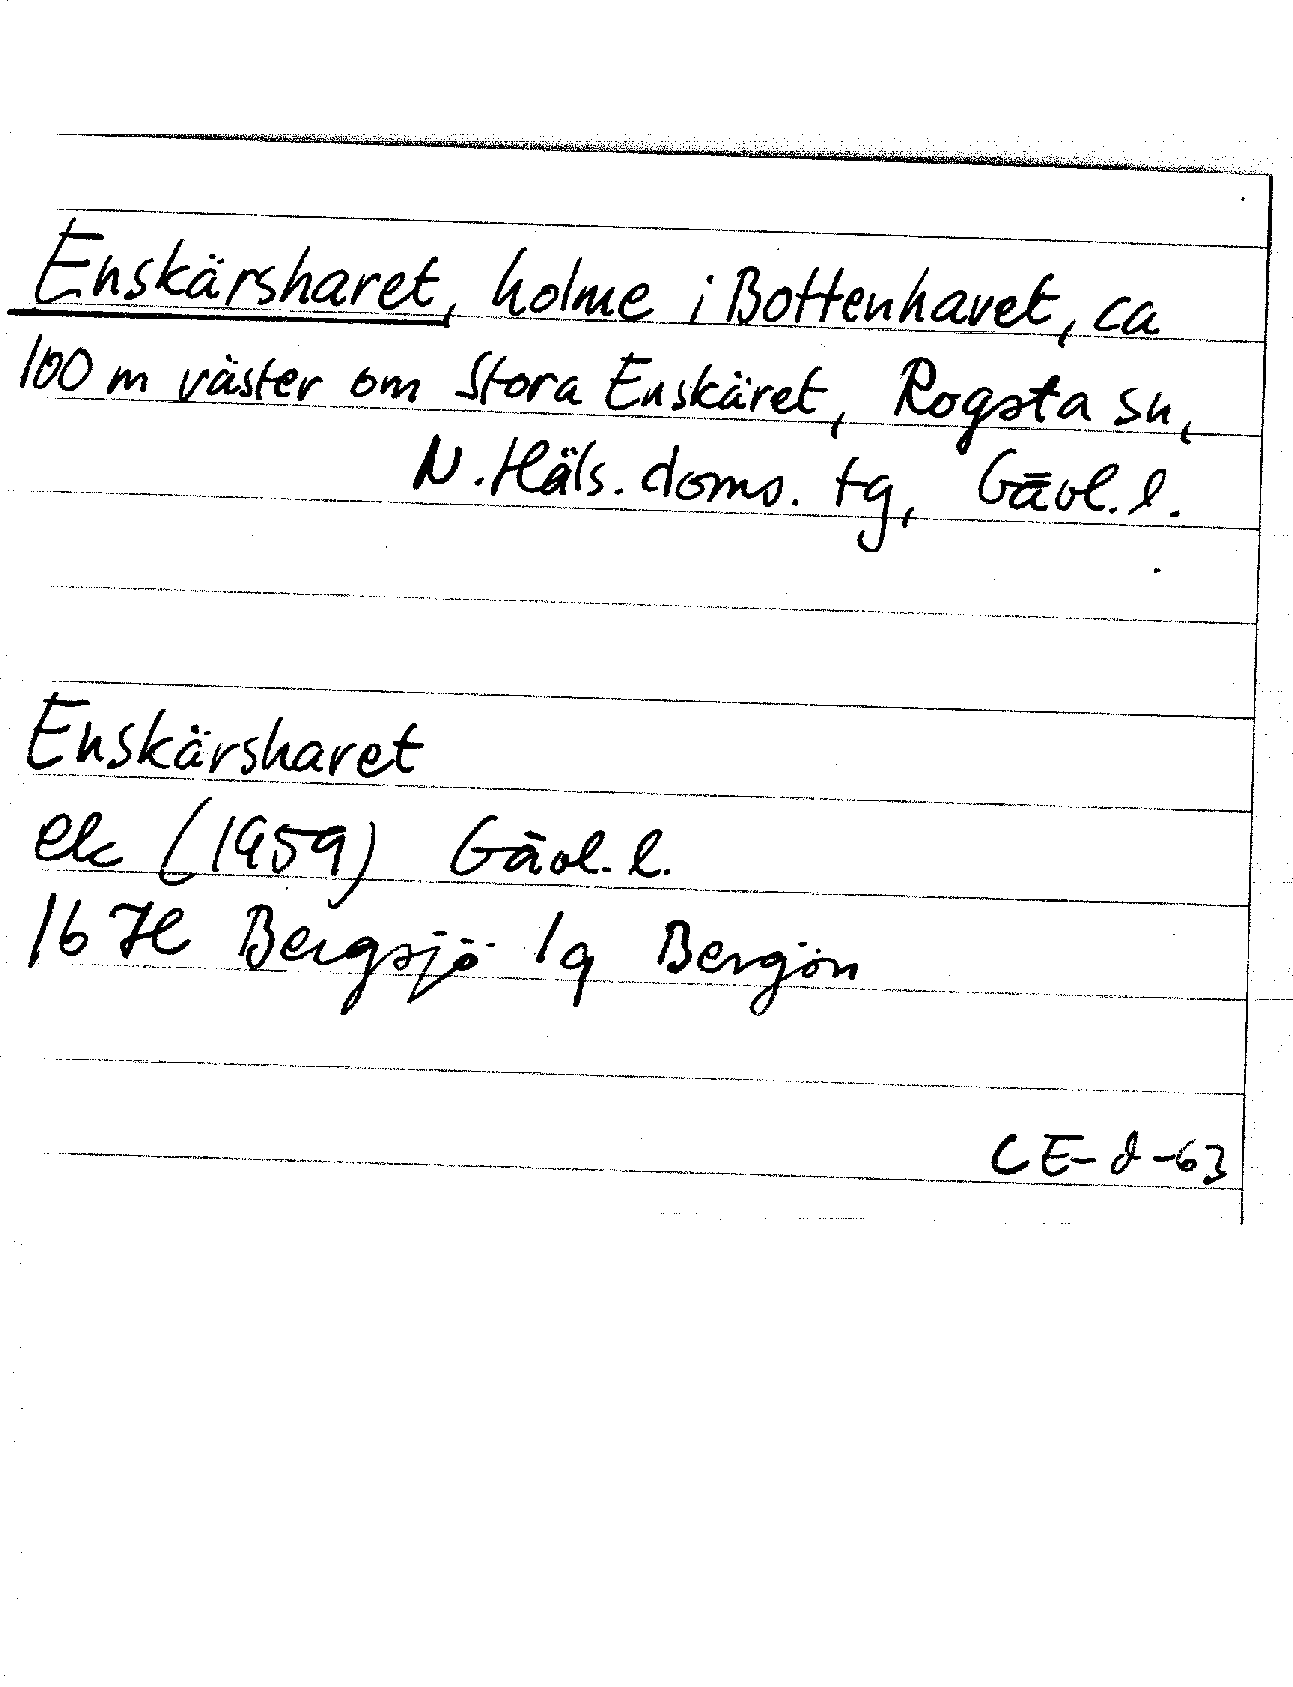 Enskärsharet, holme i Bottenhavet, ca
100 m väster om Stora Enskäret, Rogsta sn,
N. Häls. doms. tg, Gävl. l.
Enskärsharet
ek (1959) Gävl. l.
16 H Bergsjö 1q Bergön
CE-d-63